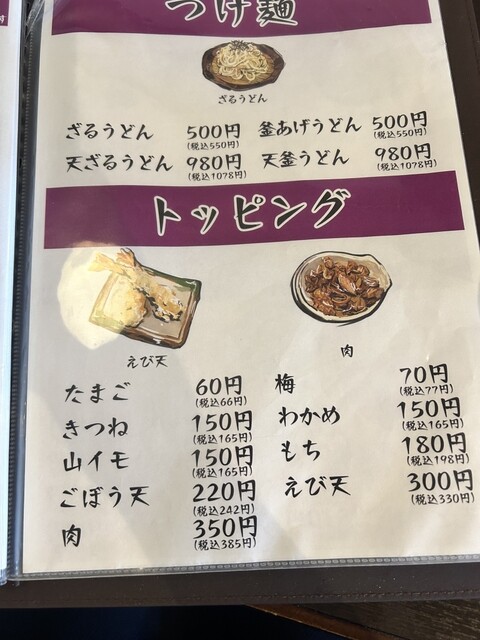 つけ麺
ざるうどん
ざるうどん 500円 (税込550円)
釜あげうどん 500円 (税込550円)
天ざるうどん 980円 (税込1078円)
天釜うどん 980円 (税込1078円)
トッピング
えび天
肉
たまご 60円 (税込66円)
きつね 150円 (税込165円)
山イモ 150円 (税込165円)
ごぼう天 220円 (税込242円)
肉 350円 (税込385円)
梅 70円 (税込77円)
わかめ 150円 (税込165円)
もち 180円 (税込198円)
えび天 300円 (税込330円)